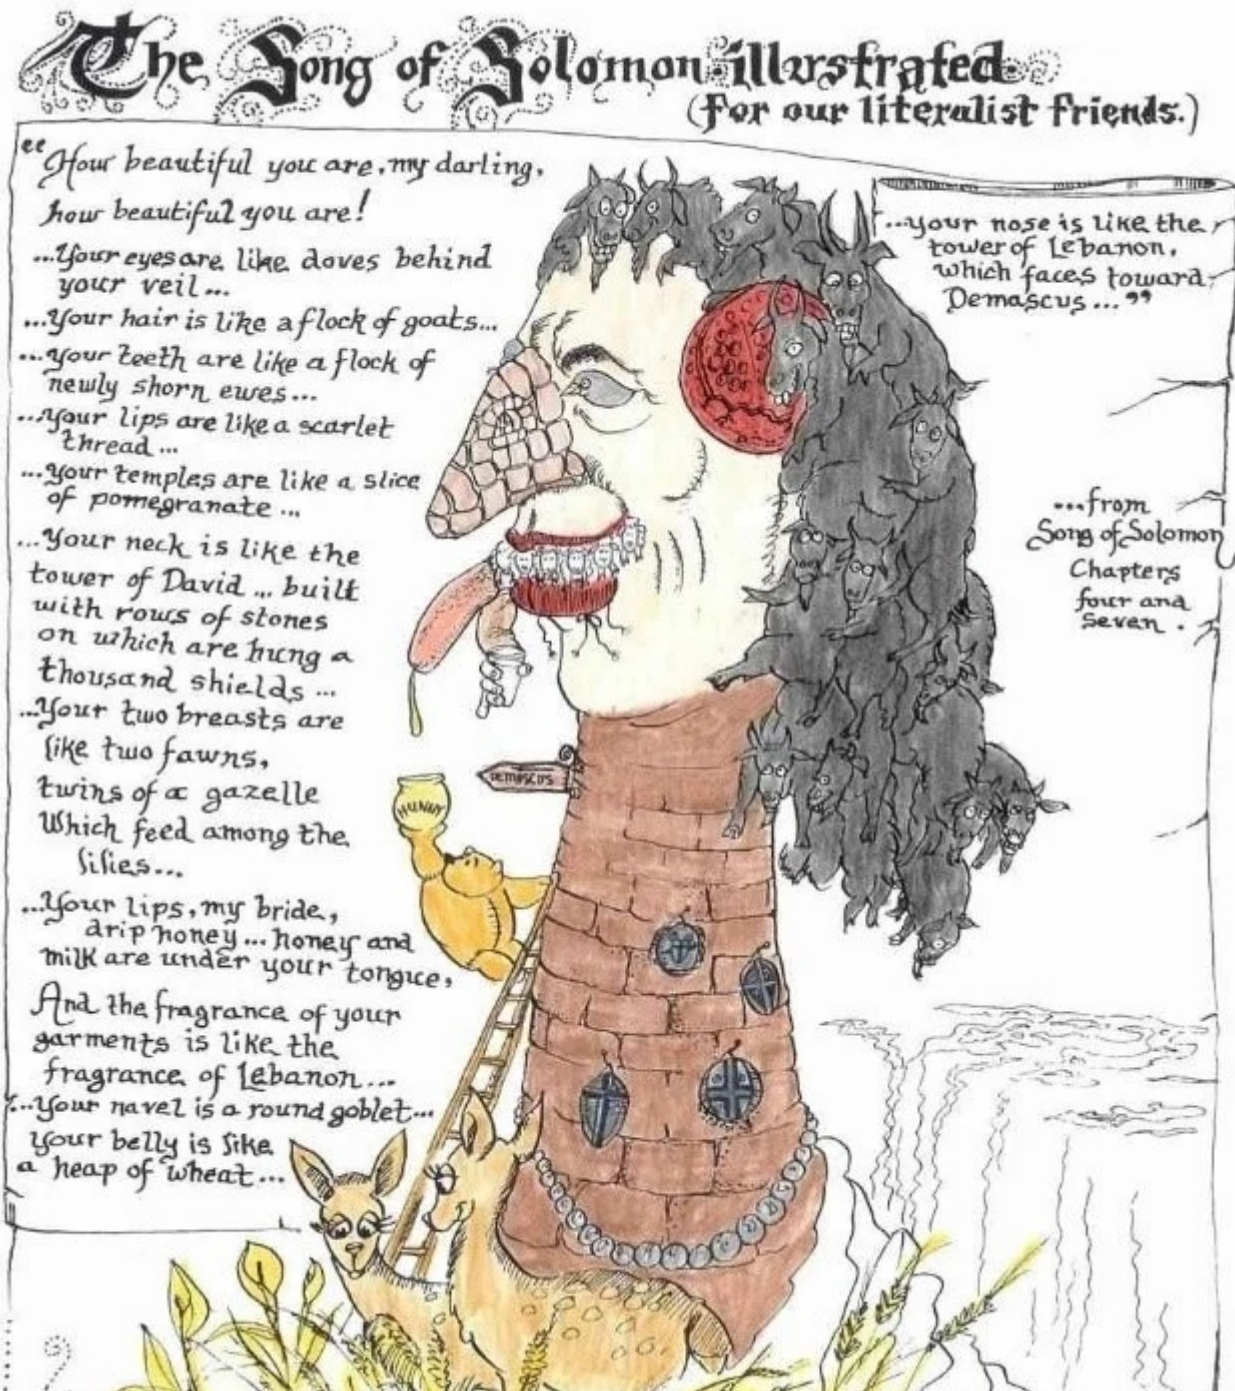 The Song of Solomon illustrated
(for our literalist friends.)
"How beautiful you are, my darling,
how beautiful you are!
...Your eyes are like doves behind
your veil...
...Your hair is like a flock of goats...
...your teeth are like a flock of
newly shorn ewes...
...your lips are like a scarlet
thread...
...your temples are like a slice
of pomegranate...
...Your neck is like the
tower of David ... built
with rows of stones
on which are hung a
thousand shields ...
...Your two breasts are
like two fawns,
twins of a gazelle
Which feed among the
lilies...
...Your lips, my bride,
drip honey... honey and
milk are under your tongue,
And the fragrance of your
garments is like the
fragrance of Lebanon...
...Your navel is a round goblet...
your belly is like
a heap of wheat...
...your nose is like the
tower of Lebanon,
which faces toward
Demascus..."
...from
Song of Solomon
Chapters
four and
Seven.
DEMASCUS
HUNNY